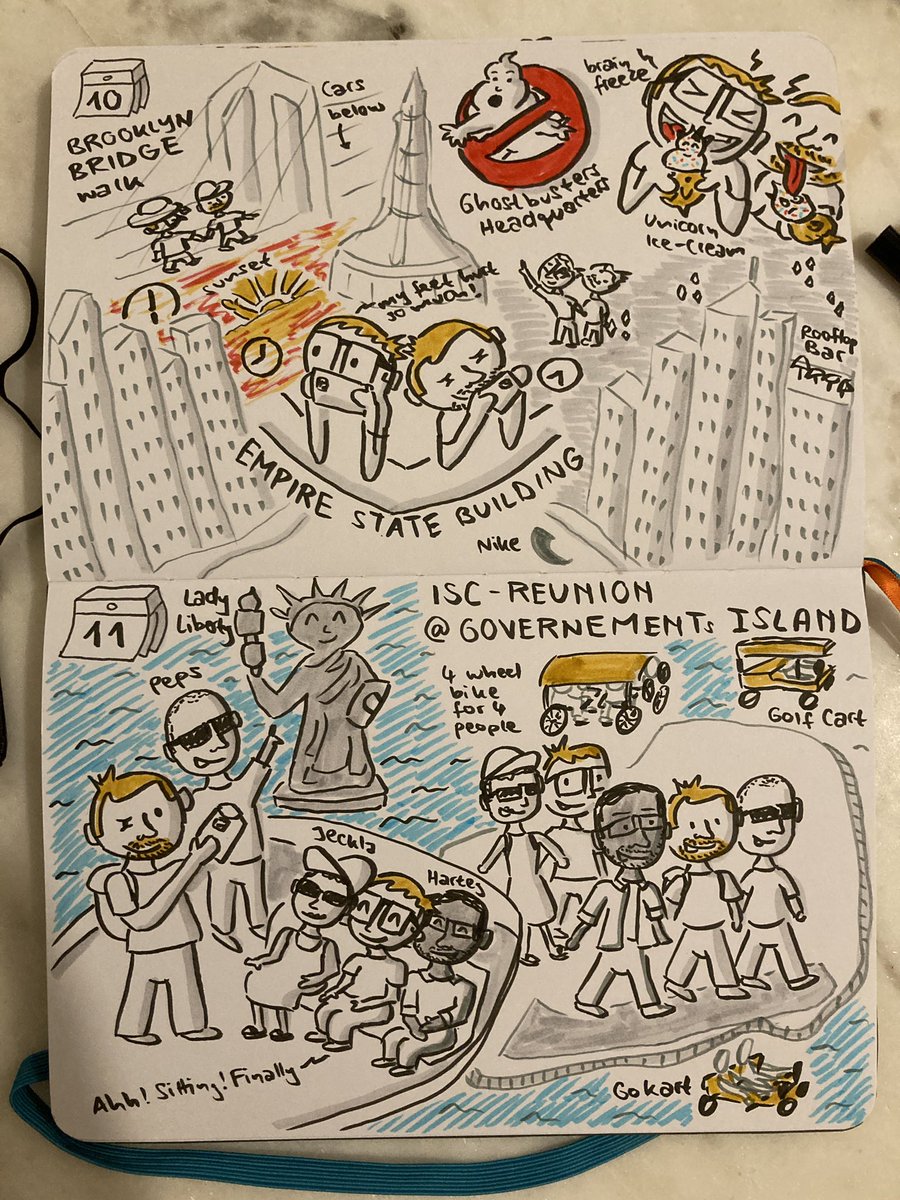 10
BROOKLYN
BRIDGE
walk
Cars
below
Ghostbusters
Headquarters
brain
freeze
Unicorn
Ice-Cream
sunset
my feet hurt
so much!
Rooftop
Bar
EMPIRE STATE BUILDING
Nike
11
Lady
Liberty
peps
ISC-REUNION
@ GOVERNEMENTs ISLAND
4 wheel
bike
for 4
people
Golf Cart
Jeckla
Hartes
Ahh! Sitting! Finally
Gokart